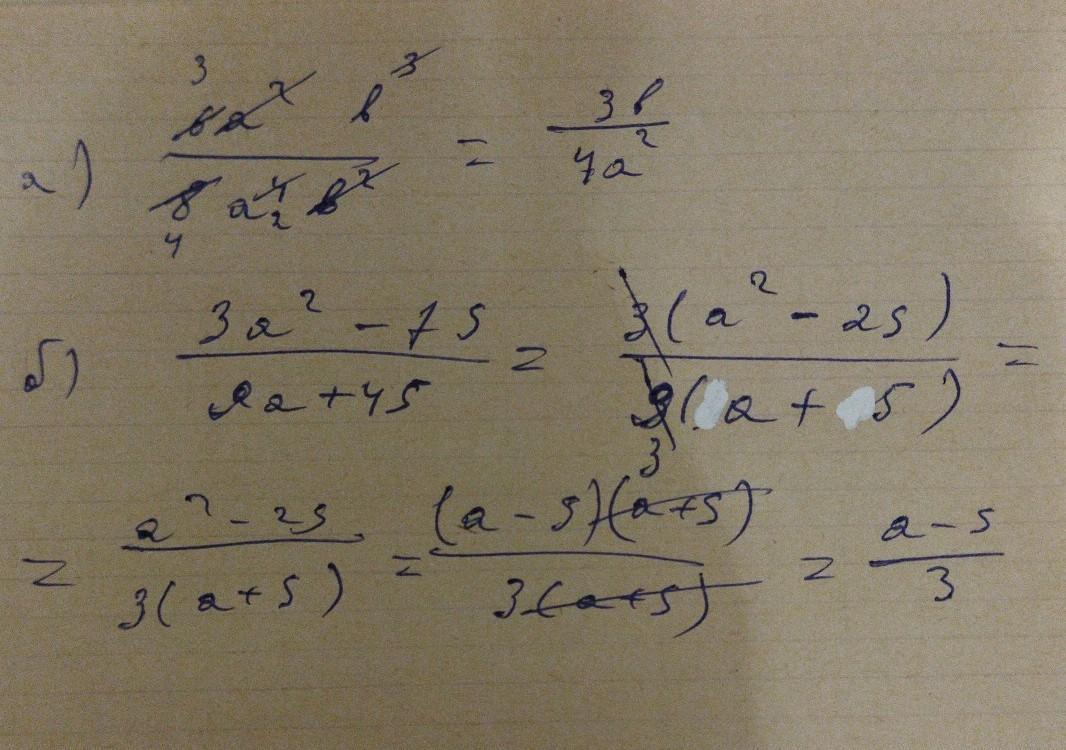 а) 6a²b³ / 8a⁴b² = 3b / 4a²
б) 3a² - 75 / 9a + 45 = 3(a² - 25) / 9(a + 5) =
= a² - 25 / 3(a + 5) = (a - 5)(a + 5) / 3(a + 5) = a - 5 / 3